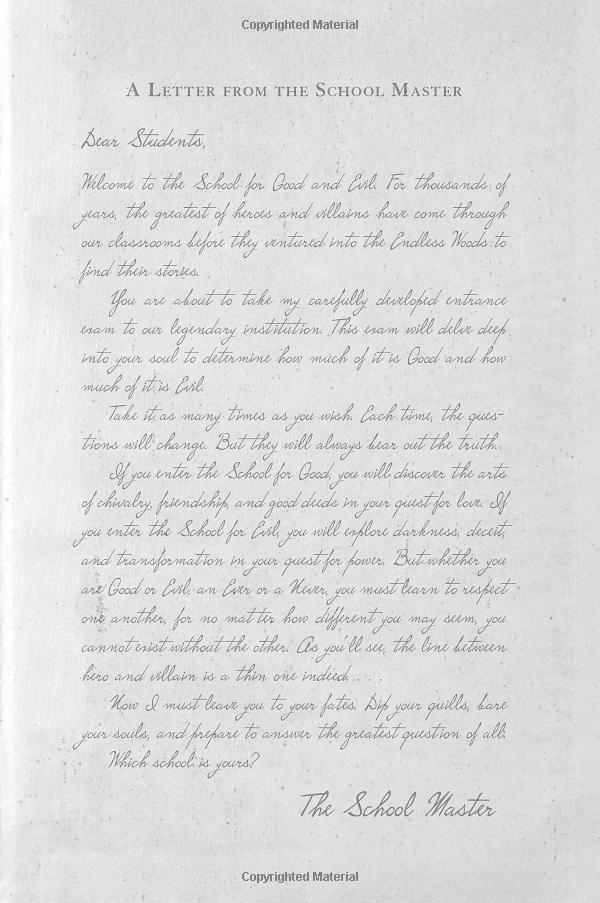 Copyrighted Material
A Letter from the School Master
Dear Students,
Welcome to the School for Good and Evil. For thousands of
years, the greatest of heroes and villains have come through
our classrooms before they ventured into the Endless Woods to
find their stories.
You are about to take my carefully developed entrance
exam to our legendary institution. This exam will delve deep
into your soul to determine how much of it is Good and how
much of it is Evil.
Take it as many times as you wish. Each time, the ques-
tions will change. But they will always bear out the truth.
If you enter the School for Good, you will discover the arts
of chivalry, friendship, and good deeds in your quest for love. If
you enter the School for Evil, you will explore darkness, deceit,
and transformation in your quest for power. But whether you
are Good or Evil, an Ever or a Never, you must learn to respect
one another, for no matter how different you may seem, you
cannot exist without the other. As you'll see, the line between
hero and villain is a thin one indeed. . . .
Now I must leave you to your fates. Dip your quills, bare
your souls, and prepare to answer the greatest question of all:
Which school is yours?
The School Master
Copyrighted Material